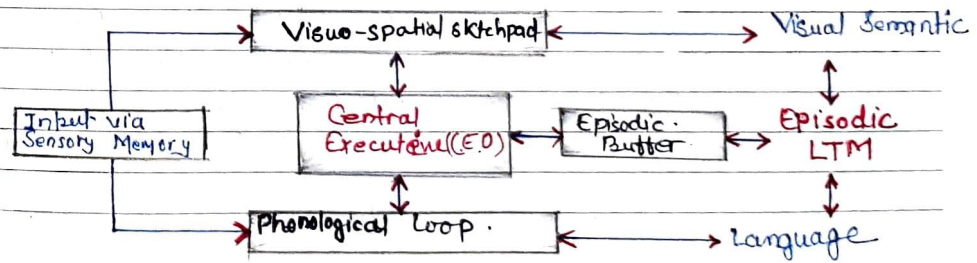 Visuo-spatial sktchpad
Visual Semantic
Input via
Sensory Memory
Central
Executive (C.E.O)
Episodic.
Buffer
Episodic
LTM
Phonological Loop.
Language